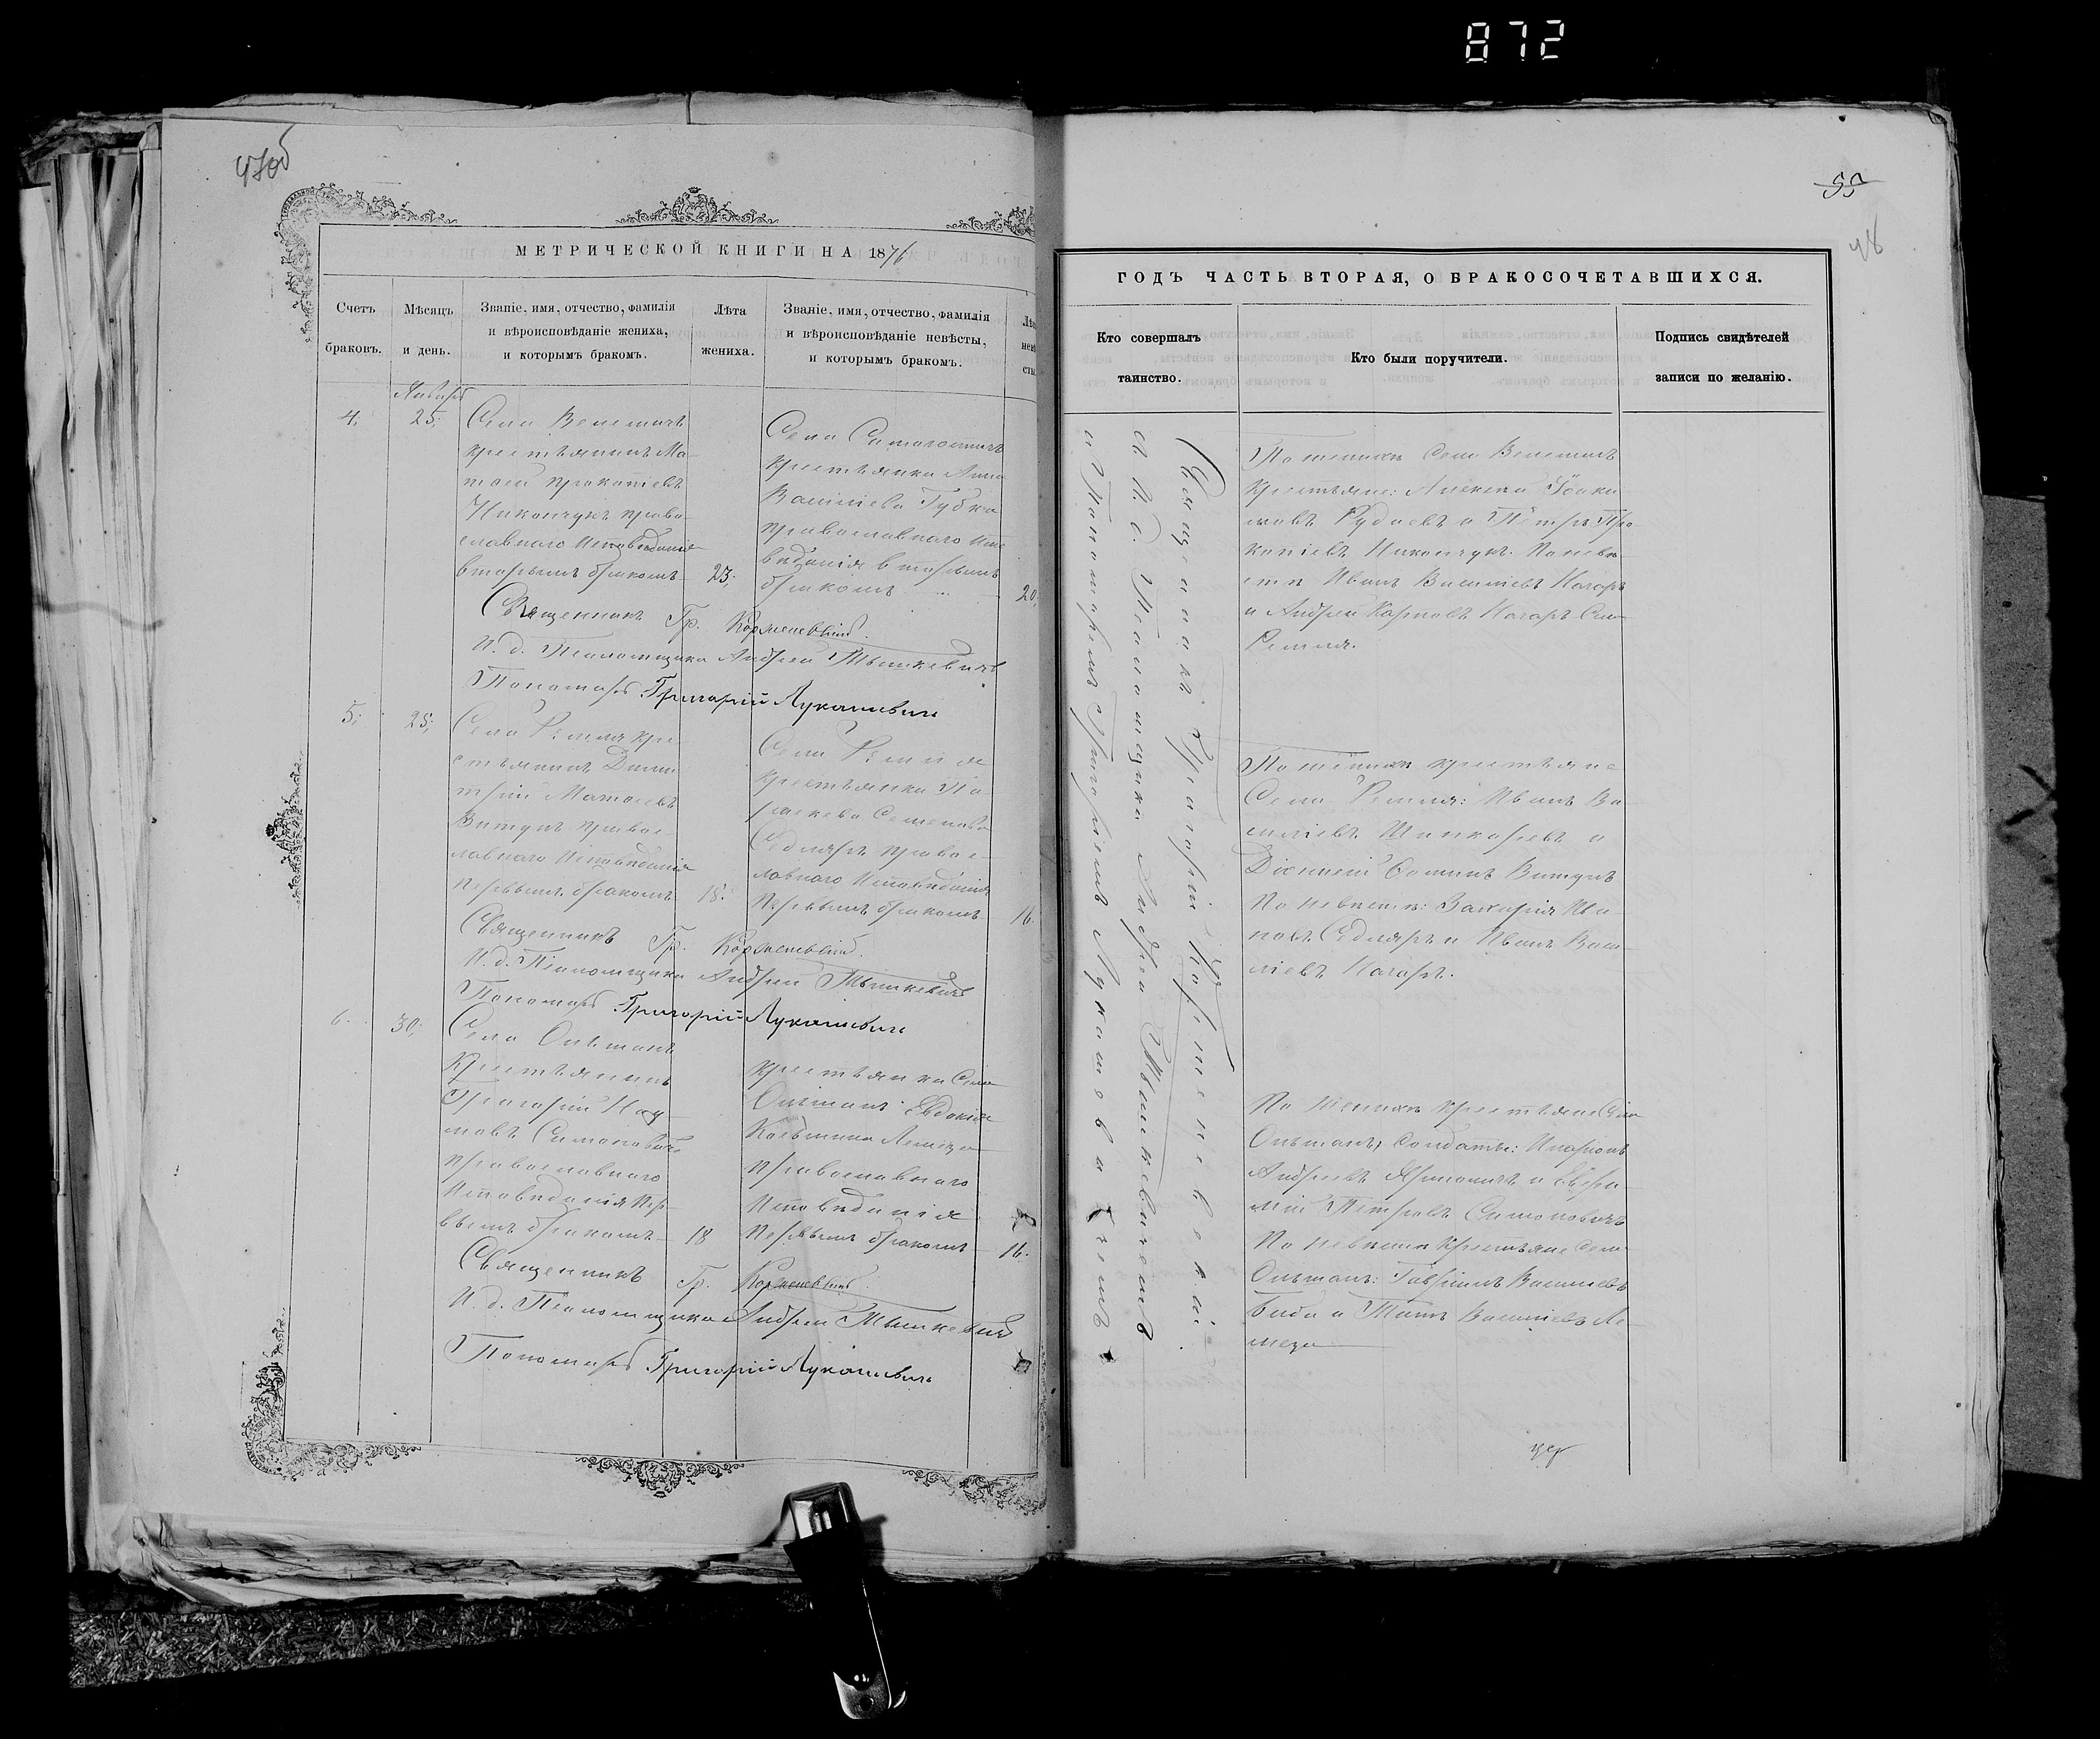 872
47об
МЕТРИЧЕСКОЙ КНИГИ НА 1876
Счетъ
браковъ.
Мѣсяцъ
и день.
Званіе, имя, отчество, фамилія
и вѣроисповѣданіе жениха,
и которымъ бракомъ.
Лѣта
жениха.
Званіе, имя, отчество, фамилія
и вѣроисповѣданіе невѣсты,
и которымъ бракомъ.
Январь
4; 25;
Села
крестьянинъ Ма-
тѳей Прокопіевъ
Никончукъ право-
славнаго Исповѣданія
вторымъ бракомъ 23.
Села
крестьянка Анна
Василіева Губка
православнаго Испо
вѣданія вторымъ
бракомъ 20;
Священникъ Гр.
И. д. Псаломщика Андрей Мышкевичъ
Пономарь Григорій Лукашевичъ
5; 25;
Села Ремля кре-
стьянинъ Дими
трій Матѳеевъ
Витунъ правос-
лавнаго Исповѣданія
первымъ бракомъ 18.
Села Ремля
крестьянка Па-
раскева Семенова
Седляръ правос-
лавнаго Исповѣданія
первымъ бракомъ 16.
Священникъ Гр.
И. д. Псаломщика Андрей Мышкевичъ
Пономарь Григорій Лукашевичъ
6. 30;
Села Ольманъ
Крестьянинъ
Григорій Нау-
мовъ Симоновичъ
православнаго
Исповѣданія пер-
вымъ бракомъ 18
Крестьянка Села
Ольманъ Евдокія
Козьмина Лемеза
православнаго
Исповѣданія
первымъ бракомъ 16.
Священникъ Гр.
И. д. Псаломщика Андрей Мышкевичъ
Пономарь Григорій Лукашевичъ
55
48
ГОДЪ ЧАСТЬ ВТОРАЯ, О БРАКОСОЧЕТАВШИХСЯ.
Кто совершалъ
таинство.
Кто были поручители.
Подпись свидѣтелей
записи по желанію.
Священникъ Григорій
И. д. Псаломщика Андрей Мышкевичемъ
и Пономаремъ Григоріемъ Лукашевичемъ
По женихѣ Села
Крестьяне: Алексѣй Іоаки-
мовъ Рудаевъ и Петръ Про-
копіевъ Никончукъ. По невѣ-
стѣ Иванъ Василіевъ
и Андрей Карповъ Села
Ремля.
По женихѣ крестьяне
Села Ремля: Иванъ Ва-
силіевъ и
Діонисій Ѳоминъ Витунъ
По невѣстѣ: Захарія Ива-
новъ Седляръ и Иванъ Васи-
ліевъ
По женихѣ Крестьяне Села
Ольманъ, Солдаты: Иларіонъ
Андреевъ и Евфи-
мій Петровъ Симоновичъ
По невѣстѣ Крестьяне Села
Ольманъ: Гавріилъ Василіевъ
и Титъ Василіевъ Ле-
меза